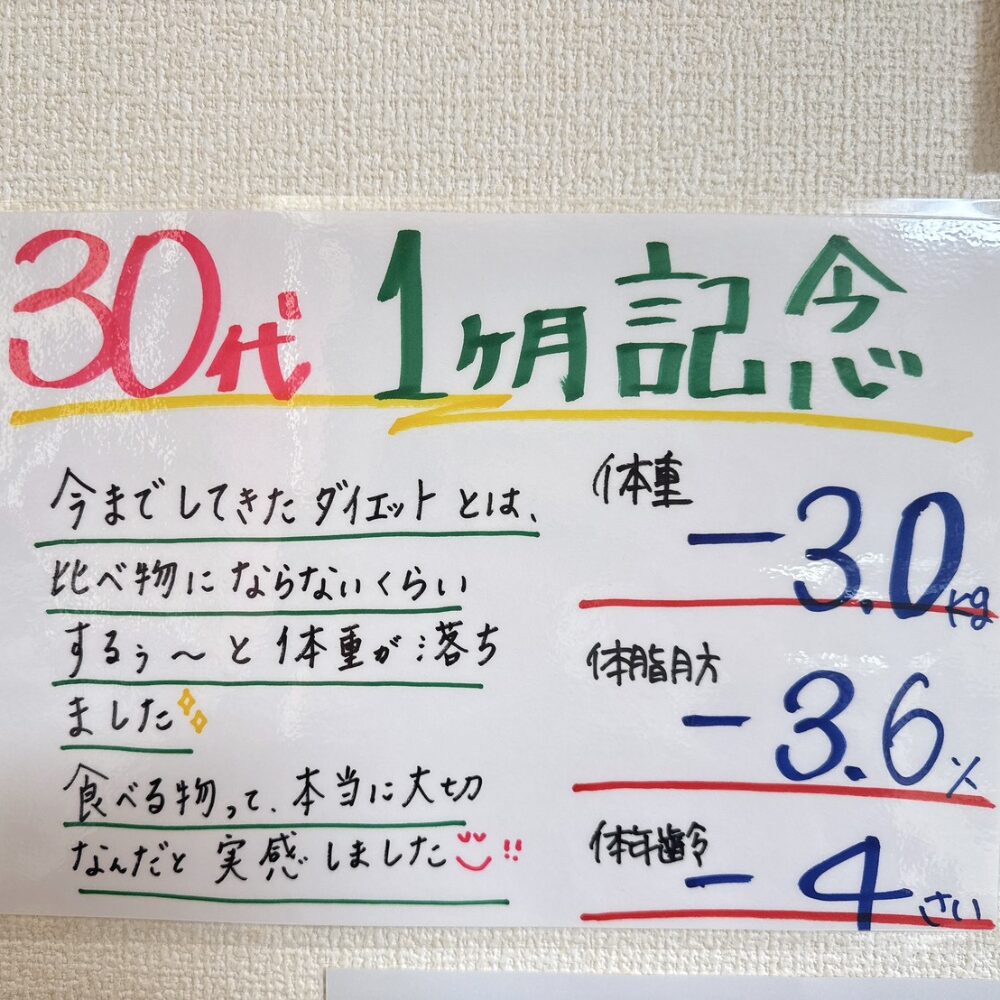 30代 1ヶ月記念
今までしてきたダイエットとは、
比べ物にならないくらい
するぅ〜と体重が落ち
ました
食べる物って、本当に大切
なんだと実感しました!!
体重
-3.0kg
体脂肪
-3.6%
体年齢
-4さい